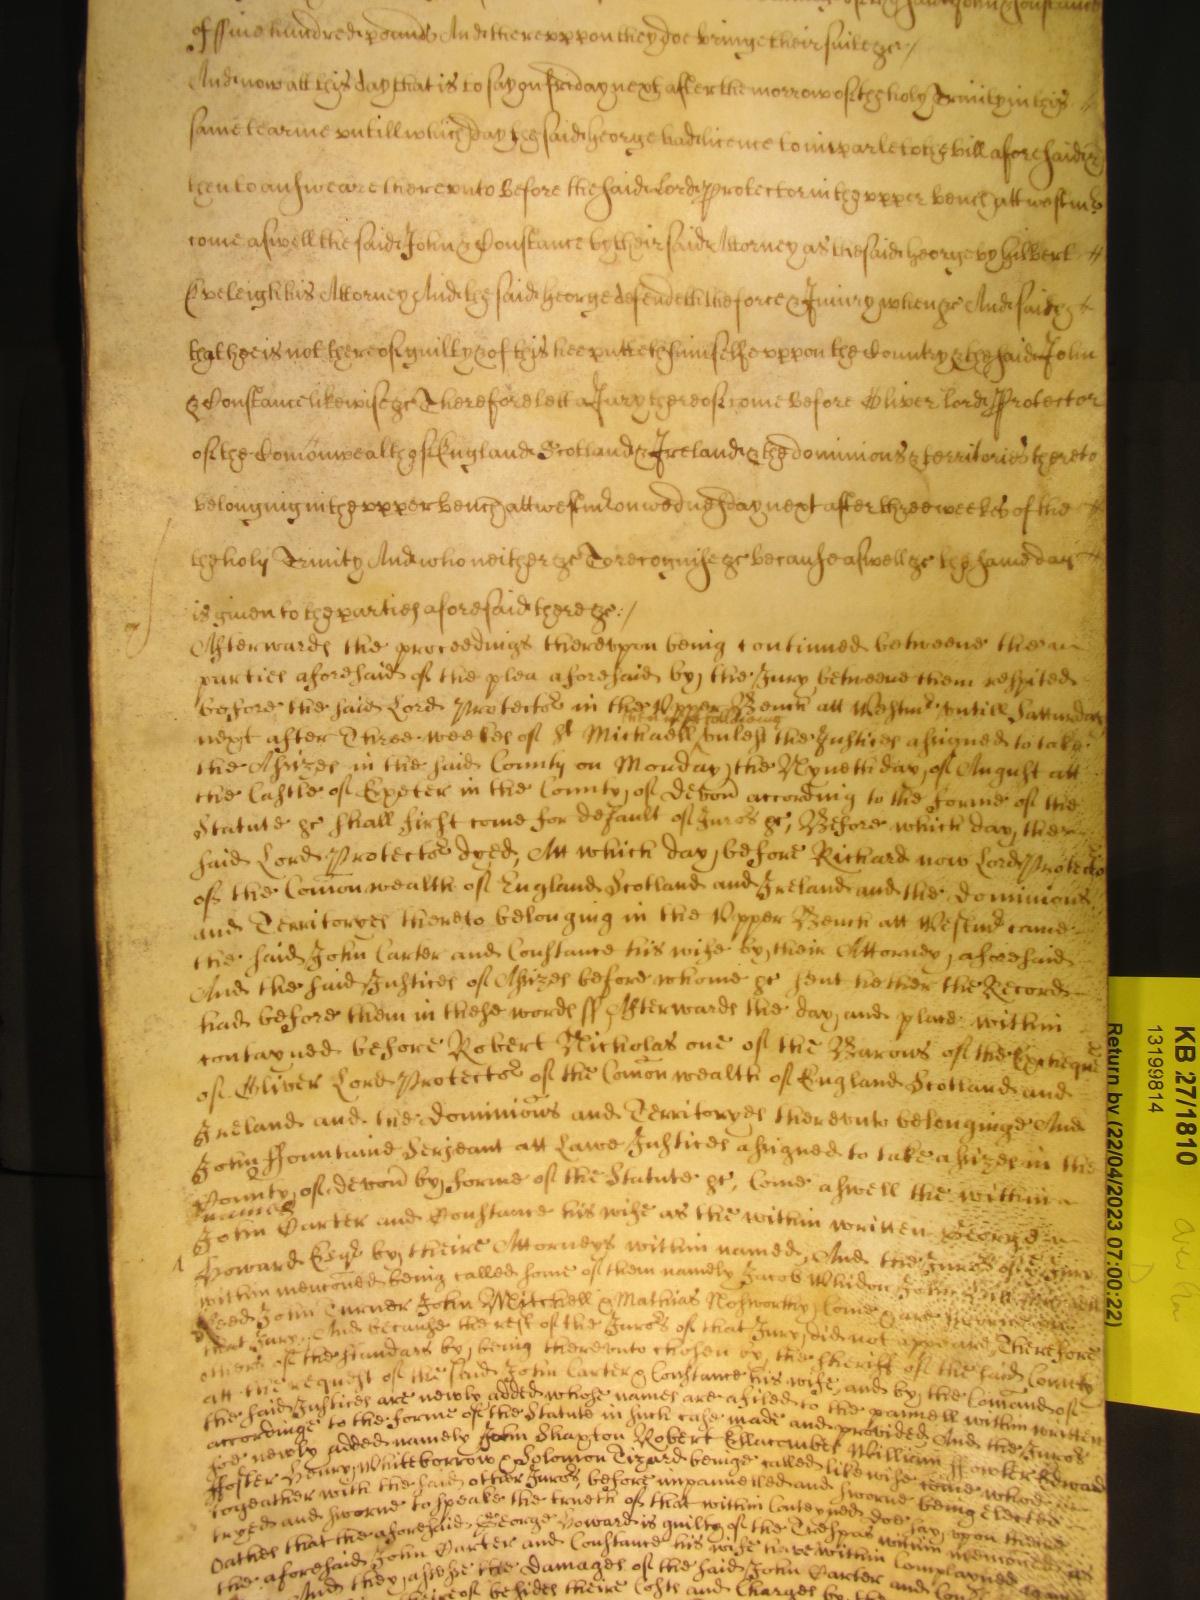 of five hundred pounds And thereuppon they doe bringe their suite &c /
And now att this day that is to say on friday next after the morrow of the holy Trinity in this
same tearme untill which day the said George had licence to imparle to the bill aforesaid &
then to answeare thereunto before the said Lord Protector in the upper bench att westm
come aswell the said John & Constance by their said Attorney as the said George by Gilbert
Eveleigh his Attorney And the said George defendeth the force & Injury when &c And saide
that hee is not thereof guilty & of this hee putteth himselfe uppon the Country & the said John
& Constance likewise &c Therefore lett a Jury thereof come before Oliver Lord Protector
of the Comonwealth of England Scotland & Ireland & the dominions & territories thereto
belonging in the upper bench att westm on wednesday next after three weekes of the
the holy Trinity And who neither &c To recognise &c because aswell &c the same day
is given to the parties aforesaid there &c: /
Afterwards the proceedings thereupon being continued betweene the
parties aforesaid of the plea aforesaid by the Jury betweene them respited
before the said Lord Protector in the Upper Bench att Westmr. untill Satturday
next after Three weekes of St Michaell then next following unless the Justices assigned to take
the Assizes in the said County on Monday the Nyneth day of August att
the Castle of Exeter in the County of Devon according to the forme of the
Statute &c shall first come for default of Jurors &c, Before which day the
said Lord Protector dyed, Att which day before Richard now Lord Protector
of the Comonwealth of England Scotland and Ireland and the dominions
and Territoryes thereto belonging in the Upper Bench att Westmr came
the said John Carter and Constance his wife by their Attorney aforesaid
And the said Justices of Assizes before whome &c sent hether the Record
had before them in these words ss, Afterwards the day and place within
contayned before Robert Nicholas one of the Barons of the Exchequer
of Oliver Lord Protector of the Comonwealth of England Scotland and
Ireland and the dominions and Territoryes thereunto belonginge And
John Fountaine Serjeant att Lawe Justices assigned to take assizes in the
County of devon by forme of the Statute &c, Come aswell the within
named
John Carter and Constance his wife as the within written George
Howard Esqr by theire Attorneys within named, And the Jurors of the Jury
within menconed being called some of them namely Jacob Whidon John
Reed John Turner John Mitchell & Mathias Nosworthy Come & are sworne
that Jury, And because the rest of the Jurors of that Jury did not appeare, Therefore
others of the standars by, being thereunto chosen by the Sheriff of the said County
att the request of the said John Carter & Constance his wife, and by the Comand of
the said Justices are newly added whose names are afiled to the pannell within written
accordinge to the forme of the Statute in such case made and provided And the Jurors
soe newly added namely John Shapton Robert Ellacombe William Fowler Edward
Foster Henry Whiteborrow & Solomon Tizard beinge called likewise come whoe
togeather with the said other Jurors before impannelled and sworne being elected
tryed and sworne to speake the trueth of that within conteyned doe say upon theire
Oathes that the aforesaid George Howard is guilty of the Trespas within menconed as
the aforesaid John Carter and Constance his wife have within complayned against
And they assesse the damages of the said John Carter and
besides theire Costs and Charges by
KB 27/1810
13199814
Return by (22/04/2023 07:00:22)